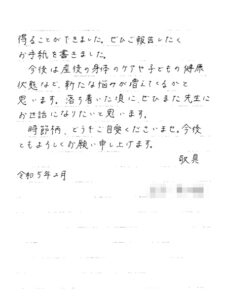 得ることができました。ぜひご報告したく
お手紙を書きました。
今後は産後の身体のケアや子どもの健康
状態など、新たな悩みが増えてくるかと
思います。落ち着いた頃に、ぜひまた先生に
お世話になりたいと思います。
時節柄、どうぞご自愛くださいませ。今後
ともよろしくお願い申し上げます。
敬具
令和5年2月